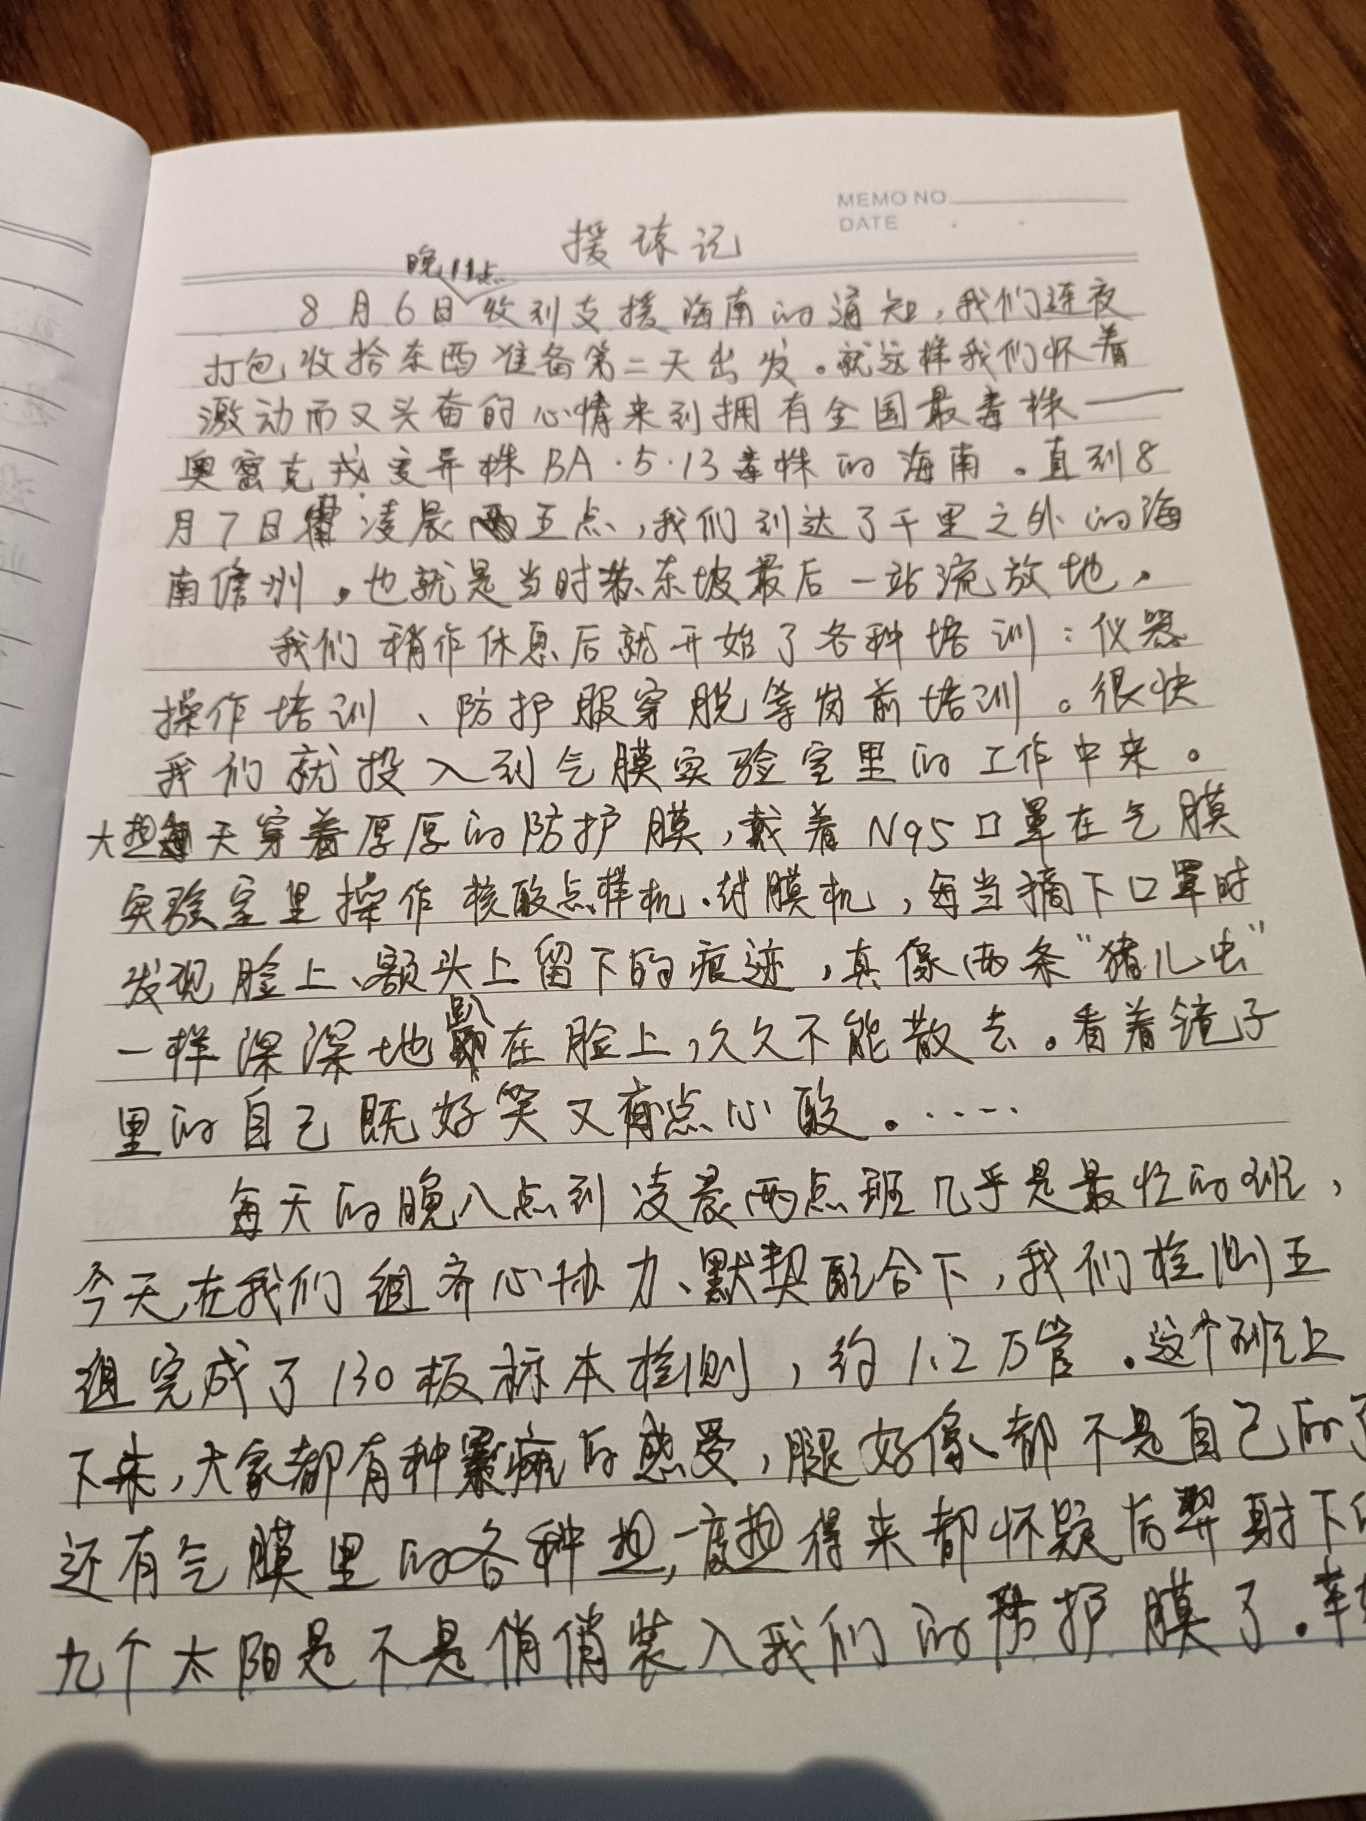 MEMO NO
DATE
援琼记
晚11点
8月6日收到支援海南的通知,我们连夜
打包收拾东西准备第二天出发。就这样我们怀着
激动而又头奋的心情来到拥有全国最毒株——
奥密克戎变异株BA·5·13毒株的海南。直到8
月7日凌晨五点,我们到达了千里之外的海
南儋州。也就是当时苏东坡最后一站流放地。
我们稍作休息后就开始了各种培训:仪器
操作培训、防护服穿脱等岗前培训。很快
我们就投入到气膜实验室里的工作中来。
大热天穿着厚厚的防护膜,戴着N95口罩在气膜
实验室里操作核酸点样机、封膜机,每当摘下口罩时
发现脸上、额头上留下的痕迹,真像两条“猪儿虫”
一样深深地趴在脸上,久久不能散去。看着镜子
里的自己既好笑又有点心酸。……
每天的晚八点到凌晨两点班几乎是最忙的班,
今天在我们组齐心协力、默契配合下,我们检测五
组完成了130板标本检测,约1.2万管。这个班上
下来,大家都有种累瘫的感受,腿好像都不是自己的了
还有气膜里的各种热,一度热得来都怀疑后羿射下的
九个太阳是不是俏俏装入我们的防护膜了。